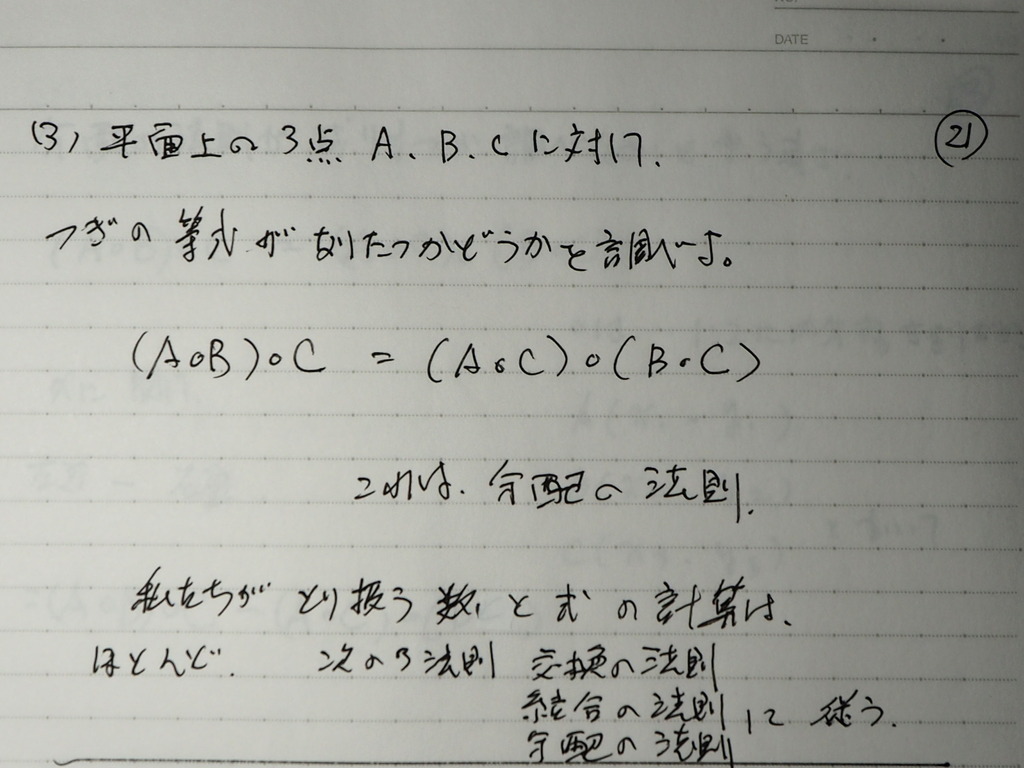 DATE
(3) 平面上の3点 A、B、Cに対して、
㉑
つぎの等式がなりたつかどうかを調べよ。
(A∘B)∘C = (A∘C)∘(B∘C)
これは、分配の法則.
私たちがとり扱う数と式の計算は、
ほとんど、次の3法則 交換の法則
結合の法則 に従う.
分配の法則